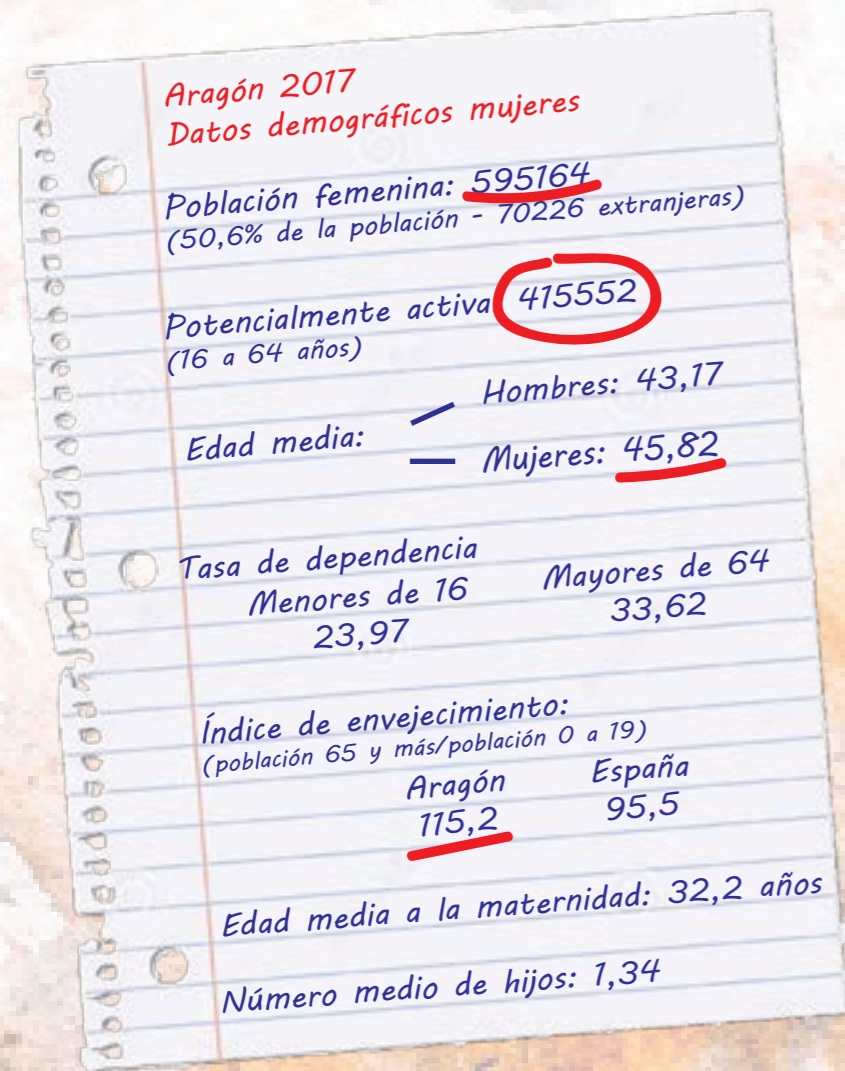 Aragón 2017
Datos demográficos mujeres
Población femenina: 595164
(50,6% de la población - 70226 extranjeras)
Potencialmente activa 415552
(16 a 64 años)
Hombres: 43,17
Edad media:
Mujeres: 45,82
Tasa de dependencia
Menores de 16 Mayores de 64
23,97 33,62
Índice de envejecimiento:
(población 65 y más/población 0 a 19)
Aragón España
115,2 95,5
Edad media a la maternidad: 32,2 años
Número medio de hijos: 1,34